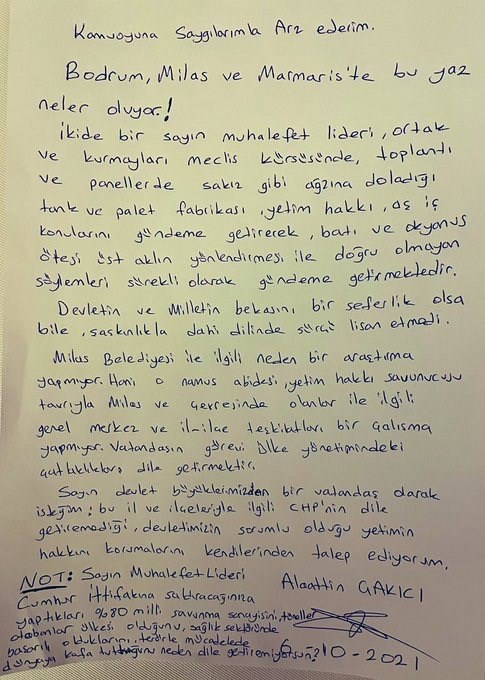 Kamuoyuna Saygılarımla Arz ederim.
Bodrum, Milas ve Marmaris'te bu yaz
neler oluyor!
İkide bir sayın muhalefet lideri, ortak
ve kurmayları meclis kürsüsünde, toplantı
ve panellerde sakız gibi ağzına doladığı
tank ve palet fabrikası, yetim hakkı, aş iç
konularını gündeme getirerek, batı ve okyanus
ötesi üst aklın yönlendirmesi ile doğru olmayan
söylemleri sürekli olarak gündeme getirmektedir.
Devletin ve Milletin bekasını bir seferlik olsa
bile, şaşkınlıkla dahi dilinde sürçü lisan etmedi.
Milas Belediyesi ile ilgili neden bir araştırma
yapmıyor. Hani o namus abidesi, yetim hakkı savunucusu
tavrıyla Milas ve çevresinde olanlar ile ilgili
genel merkez ve il-ilçe teşkilatları bir çalışma
yapmıyor. Vatandaşın görevi ülke yönetimindeki
çatlaklıkları dile getirmektir.
Sayın devlet büyüklerimizden bir vatandaş olarak
isteğim; bu il ve ilçeleriyle ilgili CHP'nin dile
getiremediği, devletimizin sorumlu olduğu yetimin
hakkını korumalarını kendilerinden talep ediyorum.
NOT: Sayın Muhalefet Lideri
Alaattin ÇAKICI
Cumhur İttifakına saldıracağınıza
yaptıkları %80 milli savunma sanayisini, tüneller
otobanlar ülkesi olduğunu, sağlık sektöründe
başarılı olduklarını, terörle mücadelede
dünyaya kafa tuttuğunu neden dile getiremiyorsun?
10-2021